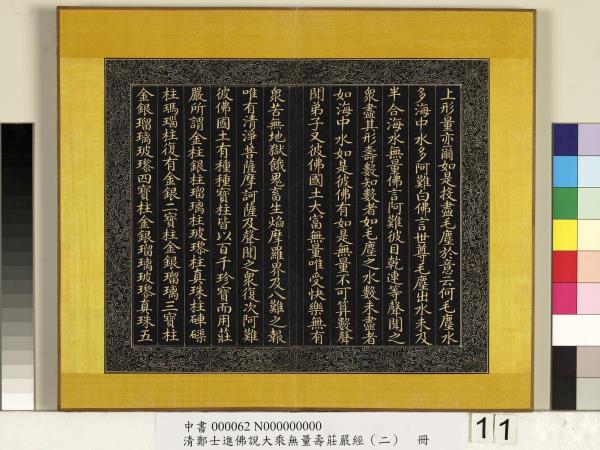 上形量亦爾如是投盡毛塵於意云何毛塵水
多海中水多阿難白佛言世尊毛塵出水未及
半合海水無量佛言阿難彼目乾連等聲聞之
衆盡其形壽數知數者如毛塵之水數未盡者
如海中水如是彼佛有如是無量不可算數聲
聞弟子又彼佛國土大富無量唯受快樂無有
衆苦無地獄餓鬼畜生焰摩羅界及八難之報
唯有清淨菩薩摩訶薩及聲聞之衆復次阿難
彼佛國土有種種寶柱皆以百千珍寶而用莊
嚴所謂金柱銀柱瑠璃柱玻瓈柱真珠柱硨磲
柱瑪瑙柱復有金銀二寶柱金銀瑠璃三寶柱
金銀瑠璃玻瓈四寶柱金銀瑠璃玻瓈真珠五
中書 000062 N000000000
清鄭士進佛說大乘無量壽莊嚴經（二） 冊
11